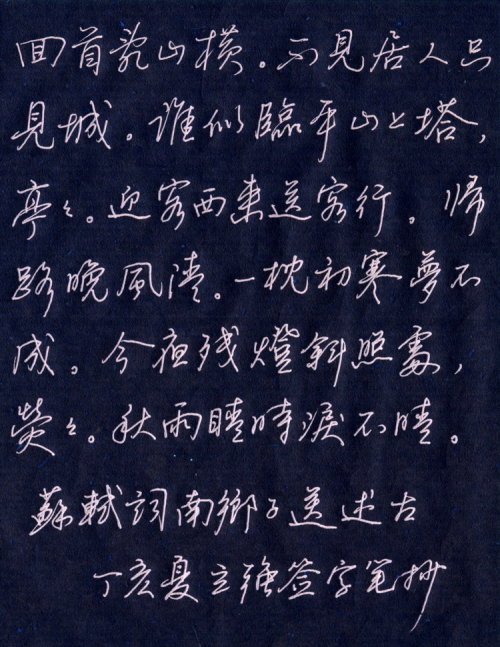 回首乱山橫。不見居人只
見城。誰似臨平山上塔，
亭々。迎客西来送客行。歸
路晚風清。一枕初寒夢不
成。今夜残燈斜照處，
熒々。秋雨晴時淚不晴。
蘇軾詞南鄉子送述古
丁亥夏立強签字笔抄